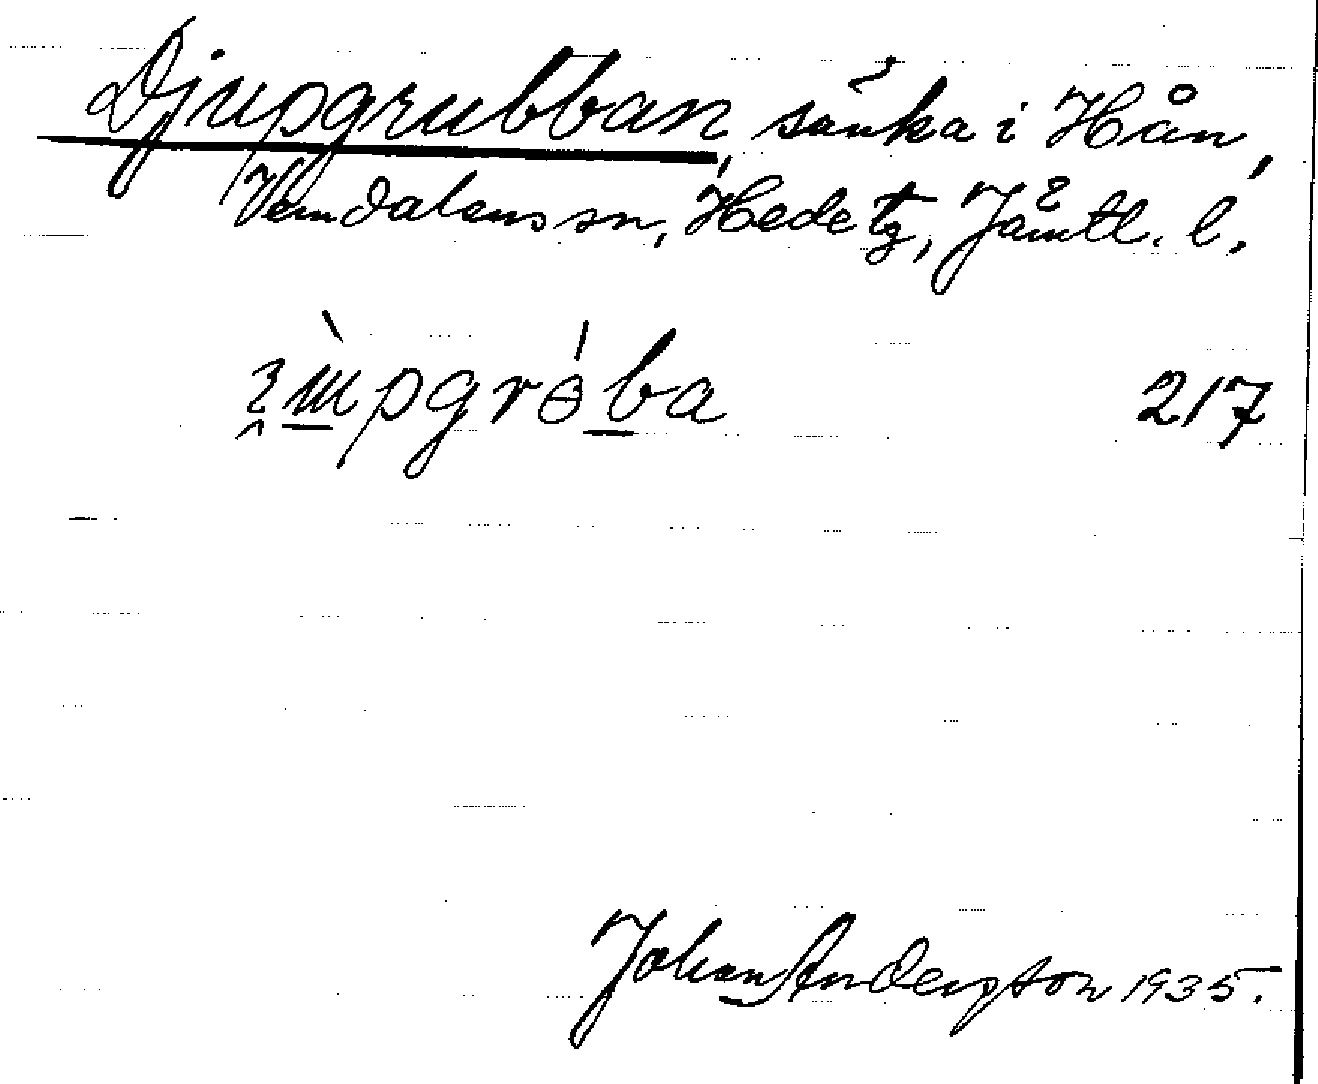 Djupgrubban, sänka i Hån,
Vemdalens sn, Hede tg, Jämtl. l.
217
Johan Anderson 1935.